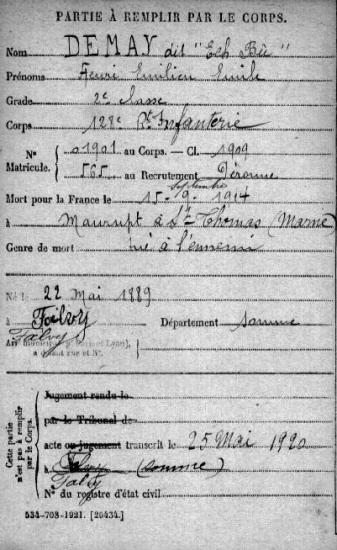 PARTIE À REMPLIR PAR LE CORPS.
Nom DEMAY dit "Ech Bù"
Prénoms Henri Emilien Emile
Grade 2e classe
Corps 128e Rt Infanterie
N° 01901 au Corps. — Cl. 1909
Matricule. 565 au Recrutement Péronne
septembre
Mort pour la France le 15 - 9 - 1914
à Maurupt à St Thomas (Marne)
Genre de mort tué à l'ennemi
Né le 22 Mai 1889
à Falvy Département somme
Falvy
Arr municipal (p Paris et Lyon),
à défaut rue et N°.
Jugement rendu le
par le Tribunal de
acte ou jugement transcrit le 25 Mai 1920
à Falvy (Somme)
Falvy
N° du registre d'état civil
Cette partie
n'est pas à remplir
par le Corps.
534-708-1921. [26434.]